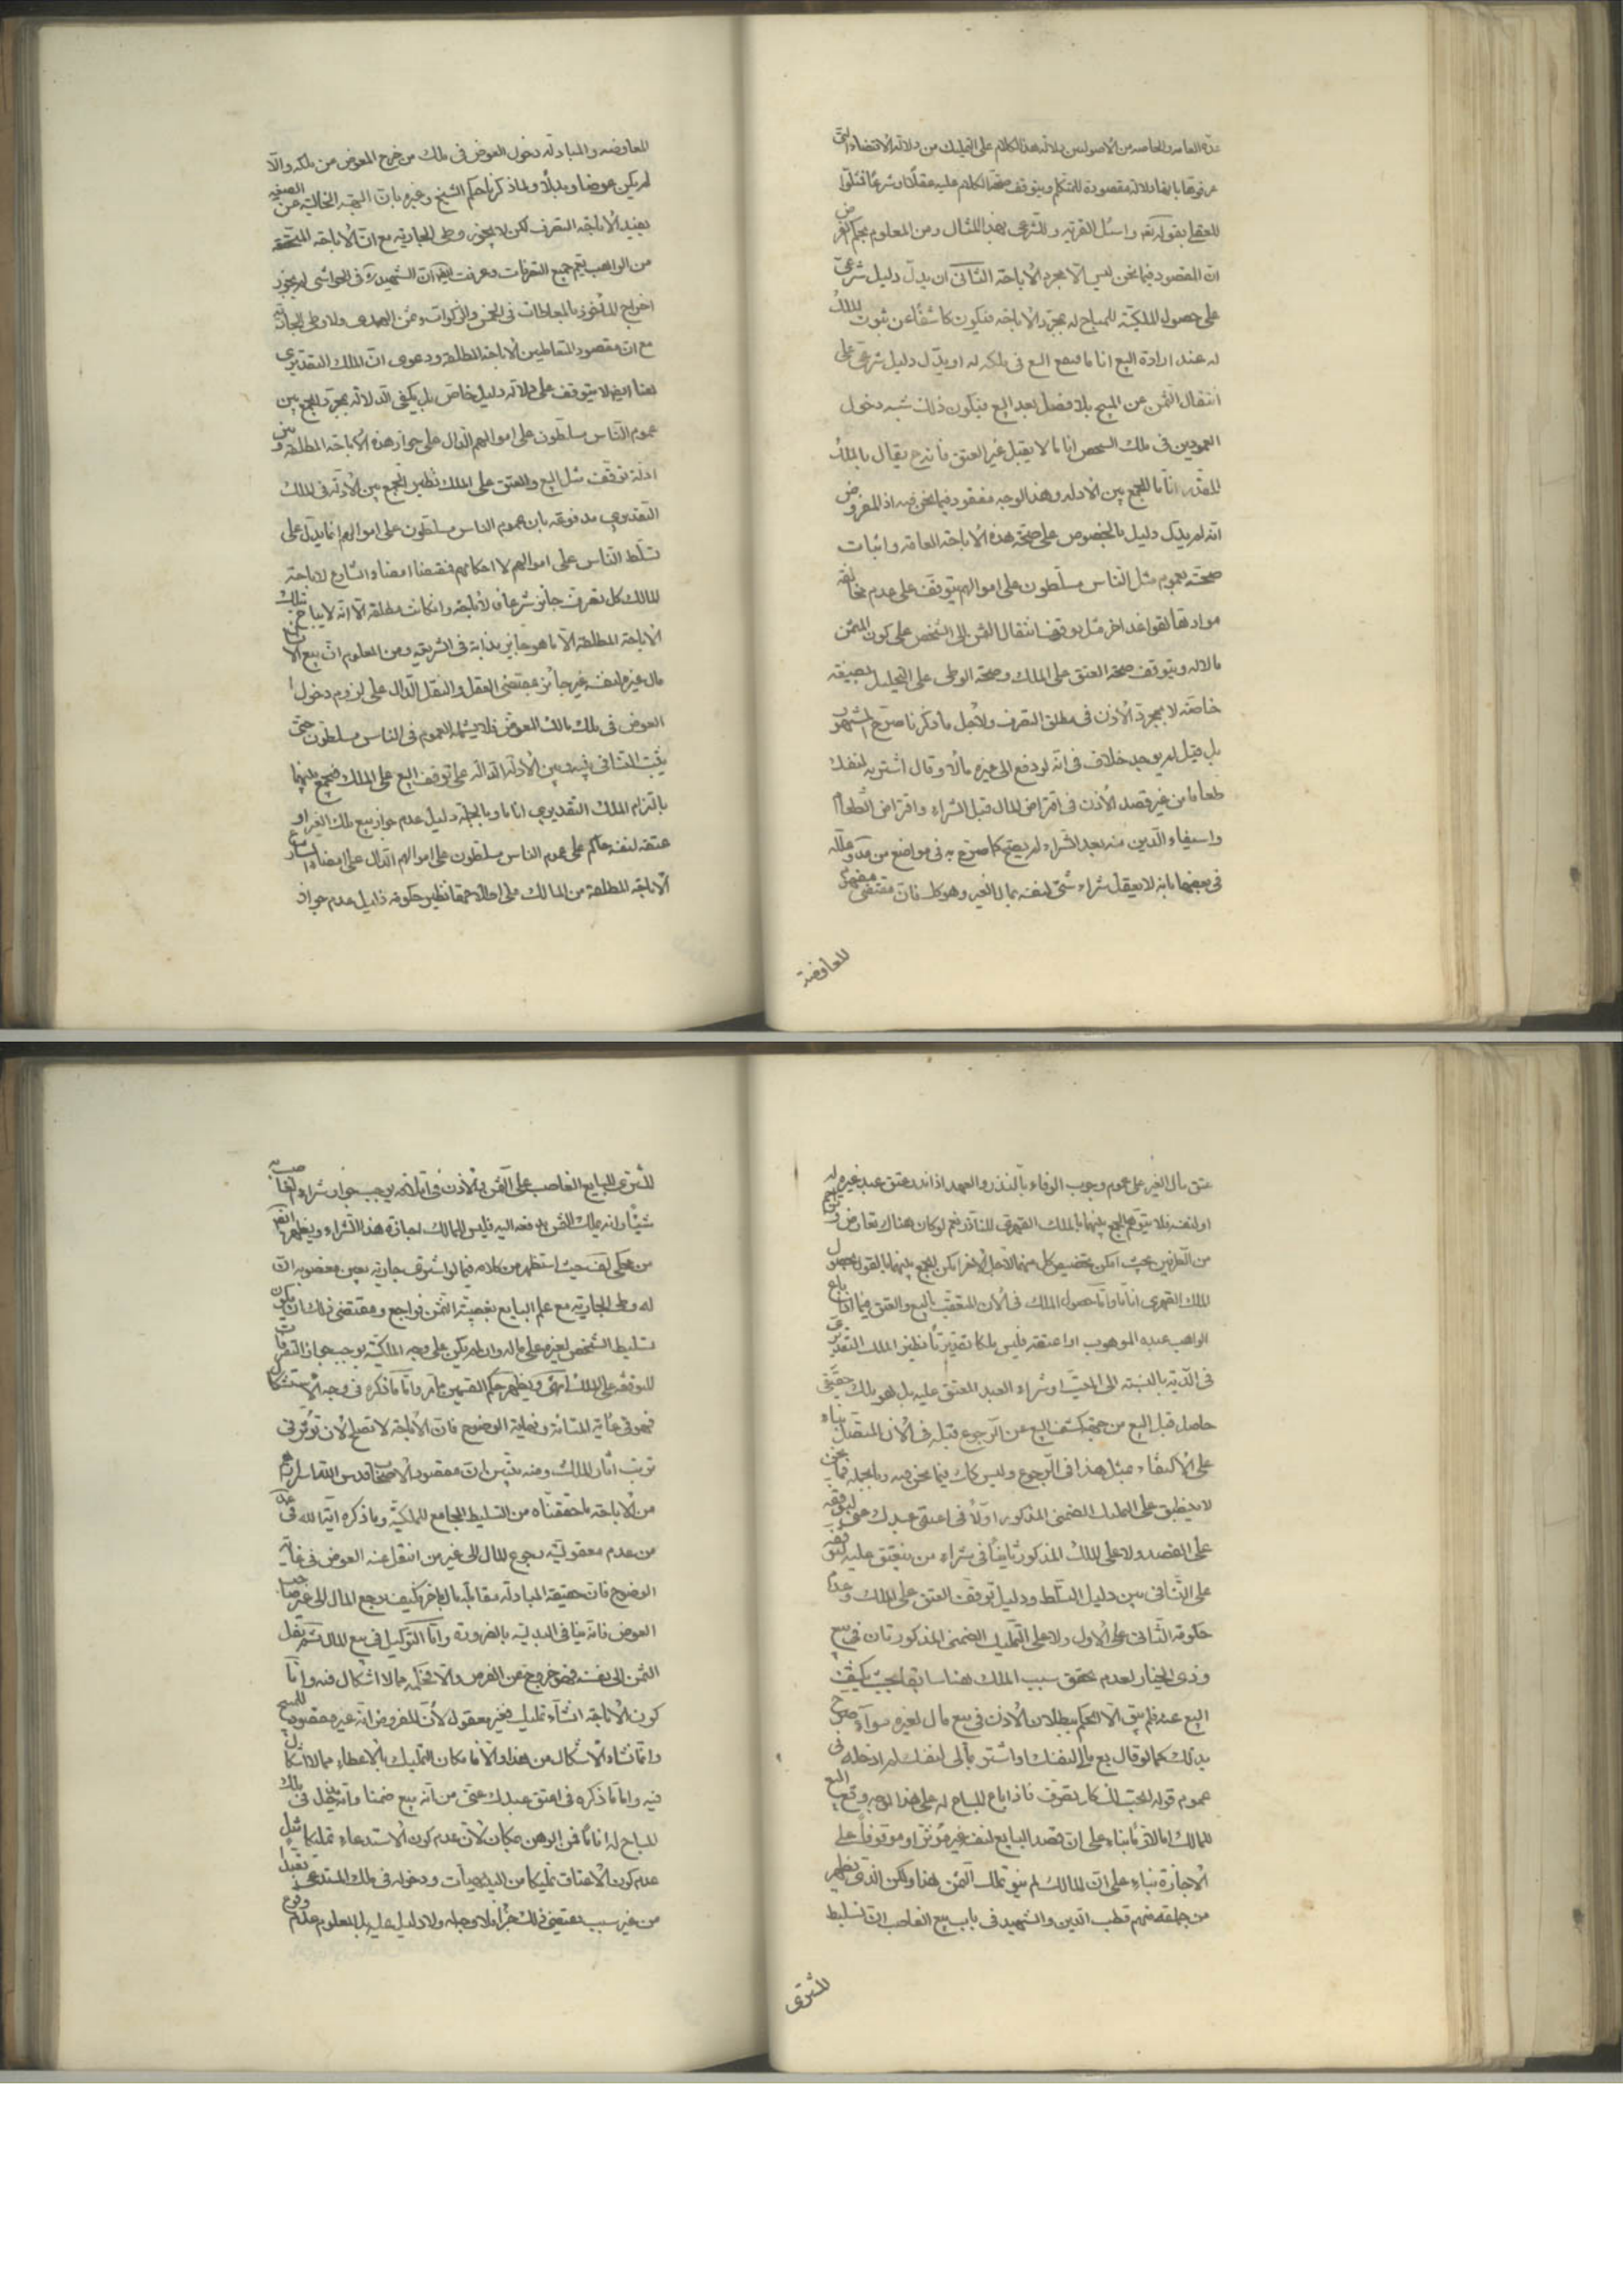 عدّه العامه والخاصه من الاصوليين دلالة هذا الكلام على التمليك من دلالة الاقتضاء التى
عرفوها بانها دلالة مقصودة للمتكلم ويتوقف صحة الكلام عليه عقلا او شرعا فمثلوا
للعقلى بقوله تعه واسئل القرية وللشرعى بهذا المثال ومن المعلوم بحكم الفرض
ان المقصود فيما نحن ليس الا مجرد الاباحة الثانى ان يدل دليل شرعى
على حصول الملكية للمباح له بمجرد الاباحه فيكون كاشفا عن ثبوت الملك
له عند ارادة البيع انا ما فيقع البيع فى ملكه له او يدل دليل شرعى على
انتقال الثمن عن المبيح بلا فصل بعد البيع فيكون ذلك شبه دخول
العمودين فى ملك الشخص انا ما لا يقبل غير العتق فانه ح يقال بالملك
المقدر انا ما للجمع بين الادله وهذا الوجه مفقود فيما نحن فيه اذ المفروض
انه لم يدل دليل بالخصوص على صحة هذه الاباحة العامة واثبات
صحته بعموم مثل الناس مسلطون على اموالهم يتوقف على عدم مخالفة
موادتها لقواعد اخر مثل توقف انتقال الثمن الى الشخص على كون المثمن
مالا له ويتوقف صحة العتق على الملك وصحة الوطى على التحليل بصيغة
خاصة لا بمجرد الاذن فى مطلق التصرف ولاجل ما ذكرنا صرح المشهور
بل قيل لم يوجد خلاف فى انه لو دفع الى غيره مالا وقال اشتر به لنفسك
طعاما من غير قصد الاذن فى اقتراض المال قبل الشراء واقتراض الطعام
واستيفاء الدين منه بعد الشراء لم يصح كما صرح به فى مواضع من عد وعلله
فى بعضها بانه لا يعقل شراء شئ لنفسه بمال الغير وهو كك فان مقتضى مفهوم
للمعاوضة
للمعاوضه والمبادلة دخول العوض فى ملك من خرج المعوض من ملكه والا
لم يكن عوضا وبدلا ولما ذكرنا حكم الشيخ وغيره بان الهبة الخالية عن الصيغه
يفيد الاباحة التصرف لكن لا يجوز وطى الجارية مع ان الاباحة المتحققه
من الواهب يعم جميع التصرفات وعرفت ايضا ان الشهيد ره فى الحواشى لم يجوز
اخراج المأخوذ بالمعاطات فى الخمس والزكوات وثمن الهدى ولا وطى الجارية
مع ان مقصود المتعاطيين الاباحة المطلقة ودعوى ان الملك التقديرى
هنا ايضا لا يتوقف على دلالة دليل خاص بل يكفى الدلالة بمجرد الجمع بين
عموم الناس مسلطون على اموالهم الدال على جواز هذه الاباحة المطلقة وبين
ادلة توقف مثل البيع والعتق على الملك نظير الجمع بين الادلة فى الملك
التقديرى مدفوعة بان عموم الناس مسلطون على اموالهم انما يدل على
تسلط الناس على اموالهم لا احكامهم فمقتضاه امضاء الشارع لاباحة
المالك كل تصرف جايز شرعا فالاباحة وان كانت مطلقة الا انه لا يباح بتلك
الاباحة المطلقة الا ما هو جايز بذاته فى الشريعة ومن المعلوم ان بيع الانسان
مال غيره لنفسه غير جائز بمقتضى العقل والنقل الدال على لزوم دخول
العوض فى ملك مالك المعوض فلا يشمله العموم فى الناس مسلطون حتى
يثبت التنافى بينه وبين الادلة الدالة على توقف البيع على الملك فيجمع بينهما
بالتزام الملك التقديرى انا ما وبالجملة دليل عدم جواز بيع ملك الغير او
عتقه لنفسه حاكم على عموم الناس مسلطون على اموالهم الدال على امضاء الشارع
الاباحة المطلقة من المالك على اطلاقها نظير حكومة دليل عدم جواز
عتق مال الغير على عموم وجوب الوفاء بالنذر والعهد اذا نذر عتق عبد غيره له
او لنفسه فلا يتوهم الجمع بينهما بالملك القهرى للناذر نعم لو كان هناك تعارض وتوهم
من الطرفين بحيث امكن تخصيص كل منهما لاجل الاخر امكن الجمع بينهما بالقول بحصول
الملك القهرى انا ما واما حصول الملك فى الان المتعقب بالبيع والعتق فيما اذا باع
الواهب عبده الموهوب او اعتقه فليس ملكا تقديريا نظير الملك التقديرى
فى الدية بالنسبة الى الميت او شراء العبد المعتق عليه بل هو ملك حقيقى
حاصل قبل البيع من جهة كشف البيع عن الرجوع قبله فى الان المتصل بناء
على الاكتفاء بمثل هذا فى الرجوع وليس كك فيما نحن فيه وبالجملة فما نحن
لا ينطبق على التمليك الضمنى المذكور اولا فى اعتق عبدك عنى لتوقفه
على القصد ولا على الملك المذكور ثانيا فى شراء من ينعتق عليه لتوقفه
على التنافى بين دليل التسلط ودليل توقف العتق على الملك وعدم
حكومة الثانى على الاول ولا على التمليك الضمنى المذكور ثالثا فى بيع
وذى الخيار لعدم تحقق سبب الملك هنا سابقا بحيث يكشف
البيع عنه فلم يبق الا الحكم ببطلان الاذن فى بيع مال لغيره سواء صرح
بذلك كما لو قال بع مالى لنفسك او اشتر بمالى لنفسك ام ادخله فى
عموم قوله ابحت لك كل تصرف فاذا باع المباح له على هذا الوجه وقع البيع
للمالك اما لازما بناء على ان قصد البايع لنفسه غير مؤثر او موقوفا على
الاجازة بناء على ان المالك لم ينو تملك الثمن هذا ولكن الذى يظهر
من جماعة منهم قطب الدين والشهيد فى باب بيع الغاصب ان تسليط
للمشترى
المشترى للبايع الغاصب على الثمن والاذن فى اتلافه يوجب جواز شراء الغاصب به
شيئا وانه يملك الثمن بدفعه اليه فليس للمالك اجازة هذا الشراء ويظهر ايضا
من محكى لف حيث استظهر من كلامه فيما لو اشترى جارية بعين مغصوبة ان
له وطى الجارية مع علم البايع بغصبية الثمن فراجع ومقتضى ذلك ان يكون
تسليط الشخص لغيره على ماله وان لم يكن على وجه الملكية يوجب جواز التصرفات
المتوقفة على الملك انتهى ويظهر حكم القسمين مما مر واما ما ذكره فى وجه الاستشكال
فهو فى غاية المتانة ونهاية الوضوح فان الاباحة لا تصلح لان تؤثر فى
ترتب اثار الملك ومنه يتبين ان مقصود الاصحاب قدس الله اسرارهم
من الاباحة ما حققناه من التسليط الجامع للملكية وما ذكره اية الله فى عد
من عدم معقولية رجوع المال الى غير من انتقل عنه العوض فى غاية
الوضوح فان حقيقة المبادلة مقابلة مال باخر فكيف يرجع المال الى غير صاحب
العوض فانه ينافى البدلية بالضرورة واما التوكيل فى بيع المال ثم نقل
الثمن الى نفسه فهو خروج عن الفرض والا فحكمه مما لا اشكال فيه واما
كون الاباحة انشاء تمليك فغير معقول لان المفروض انه غير مقصود للمبيح
وانما نشاء الاشكال من هذا والا فامكان التمليك بالاعطاء مما لا اشكال
فيه واما ما ذكره فى اعتق عبدك عنى من انه بيع ضمنا وانه يدخل فى ملك
المباح له انا ما فمن الوهن بمكان لان عدم كون الاستدعاء تمليكا مثل
عدم كون الاعتاق تمليكا من البديهيات ودخوله فى ملك المستدعى
من غير سبب يقتضى ذلك جزافا بلا وجه له ولا دليل عليه بل المعلوم عدم وقوع